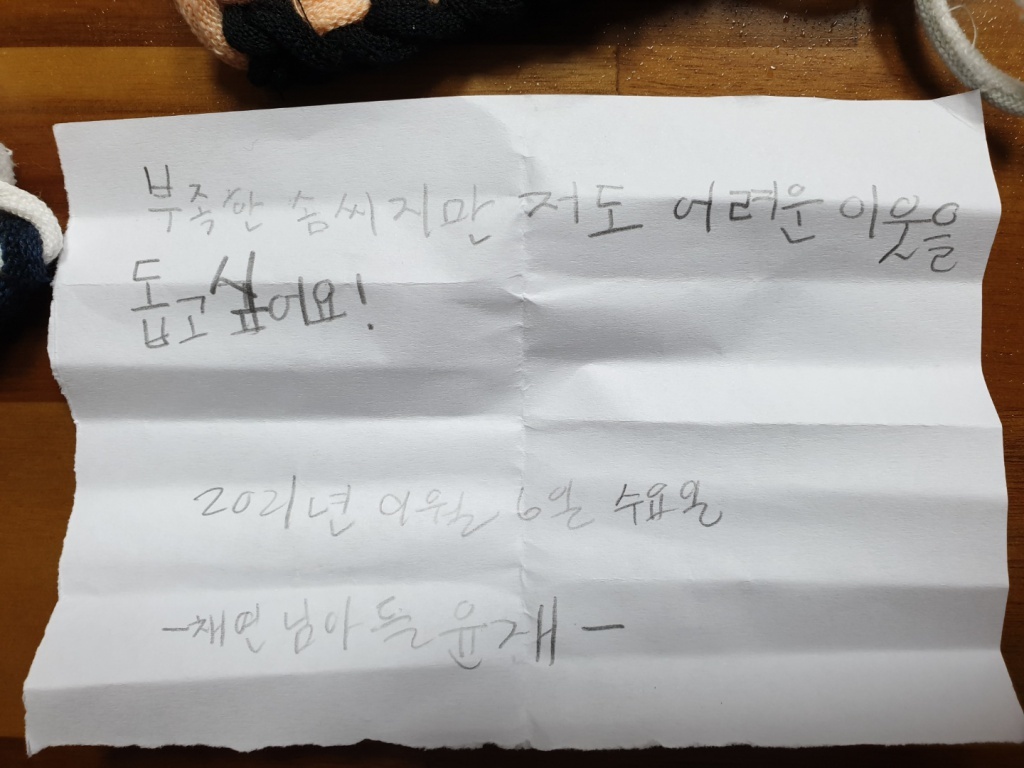 부족한 솜씨지만 저도 어려운 이웃을
돕고 싶어요!
2021년 01월 6일 수요일
-채연님아들 윤재-